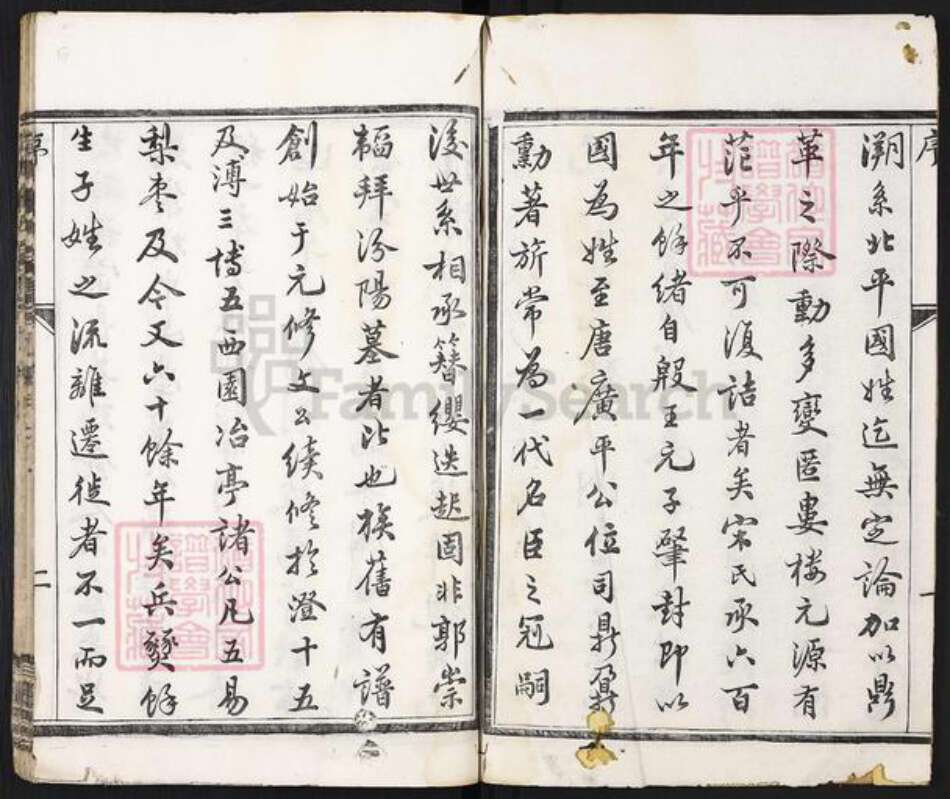 序
溯系北平國姓迄無定論加以鼎
革之際動多變匿婁楼元源有
茫乎不可復詰者矣宋氏承六百
年之餘緒自殷王元子肇封即以
國為姓至唐廣平公位司鼎鼐
勳著旂常為一代名臣之冠嗣
一
後世系相承簪纓迭起固非郭崇
韜拜汾陽墓者比也族舊有譜
創始于元修文公續修於澄十五
及溥三博五西園冶亭諸公凡五易
梨枣及今又六十餘年矣兵燹餘
生子姓之流離遷徙者不一而足
序
二
FamilySearch